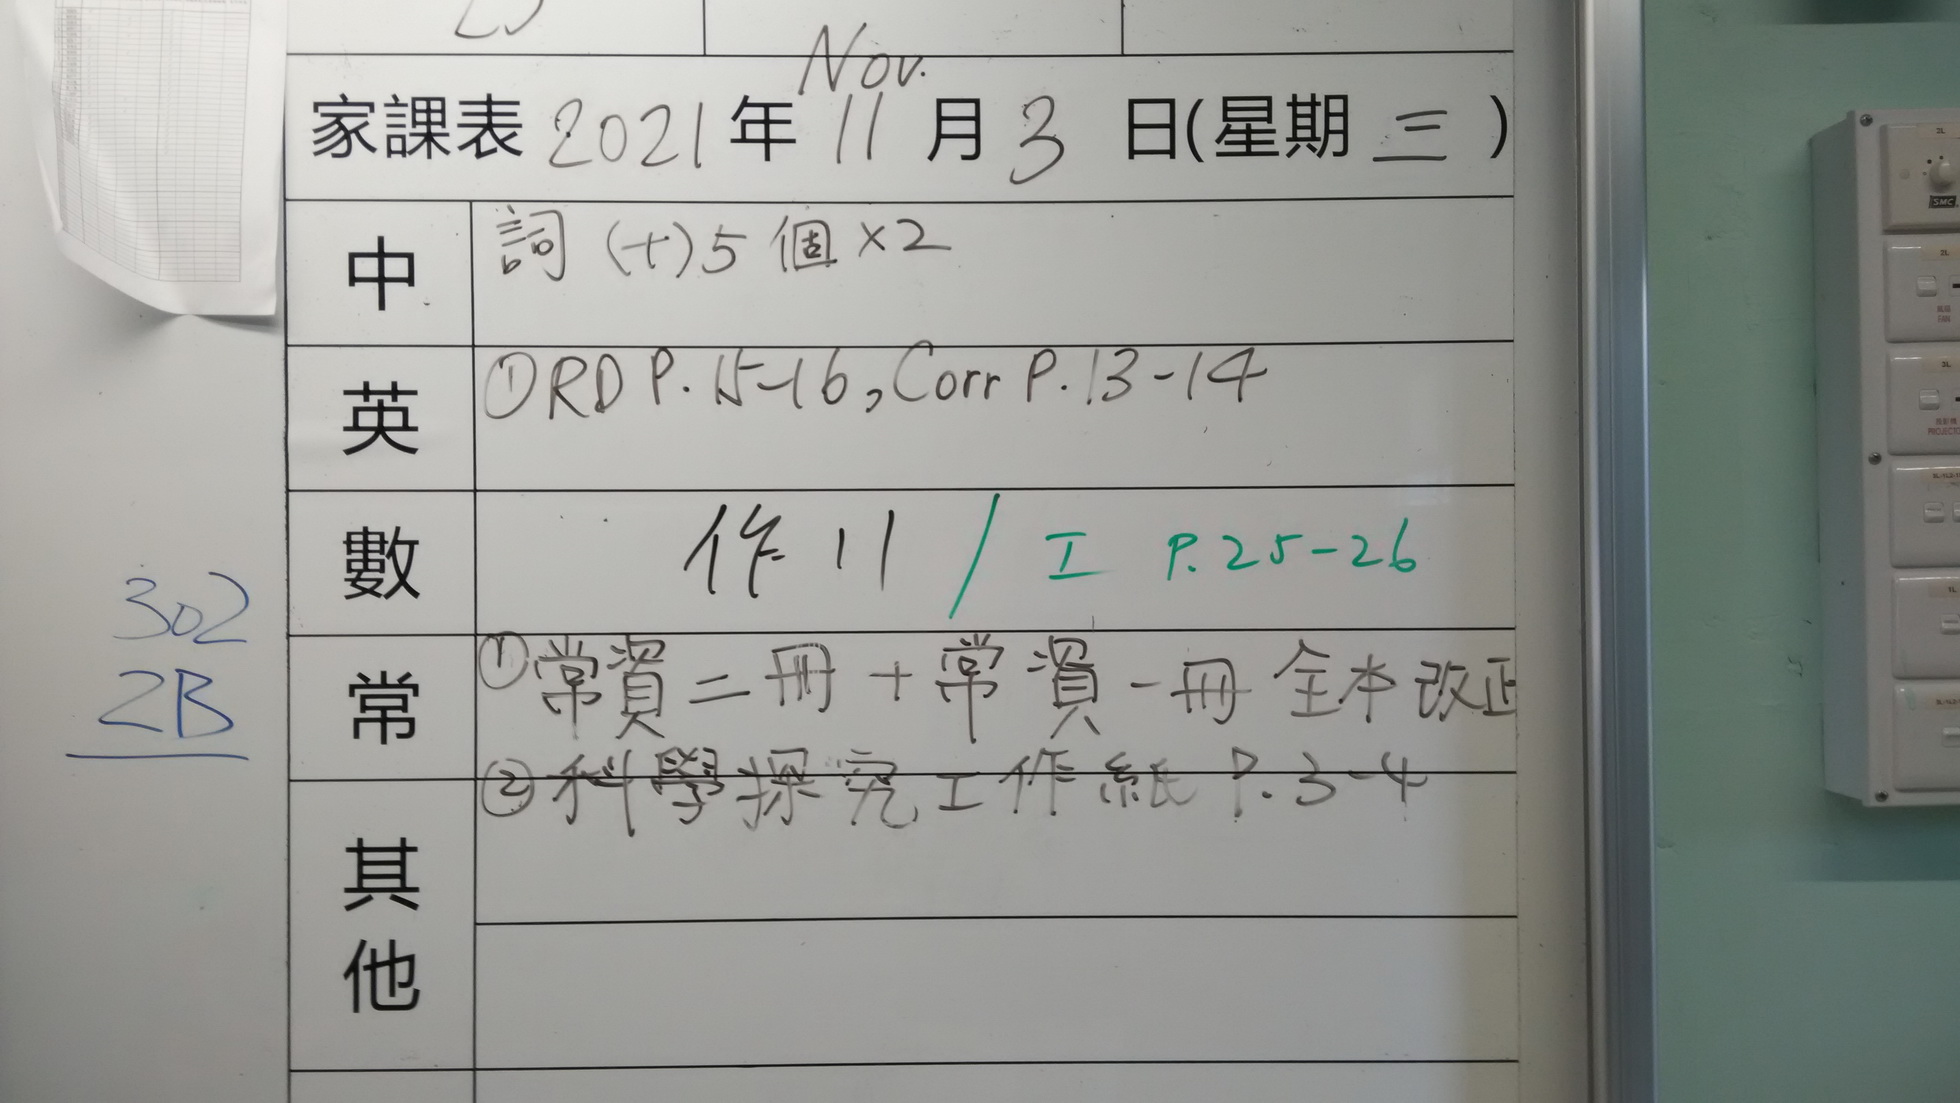 Nov.
家課表 2021 年 11 月 3 日(星期 三 )
中 詞 (十) 5 個 ×2
英 ① RD P. 15-16, Corr P. 13-14
數 作 11 / I P. 25-26
302
2B
常 ① 常資二冊 + 常資一冊 全本改正
② 科學探究工作紙 P. 3-4
其他
SMC
FAN